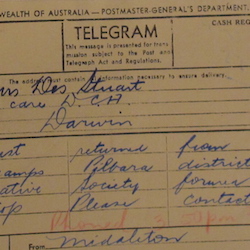 WEALTH OF AUSTRALIA — POSTMASTER-GENERAL'S DEPARTMENT.
CASH REG
TELEGRAM
This message is presented for trans
mission subject to the Post and
Telegraph Act and Regulations.
The address must contain information necessary to ensure delivery
Mrs Des Stuart
care D. C. A.
Darwin
returned from
amps Pilbara district
ative Society formed
op Please contact
Phoned 3. 50pm
From